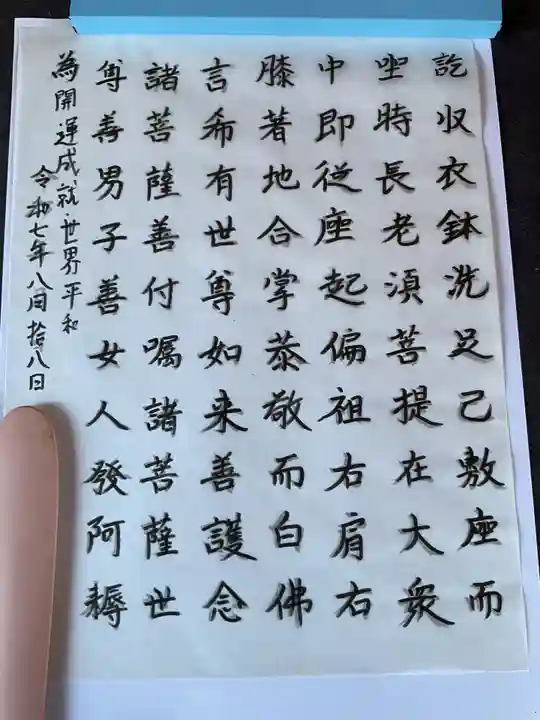 訖収衣鉢洗足己敷座而
坐時長老湏菩提在大衆
中即従座起偏袒右肩右
膝著地合掌恭敬而白佛
言希有世尊如来善護念
諸菩薩善付嘱諸菩薩世
尊善男子善女人發阿耨
為開運成就・世界平和
令和七年八月拾八日